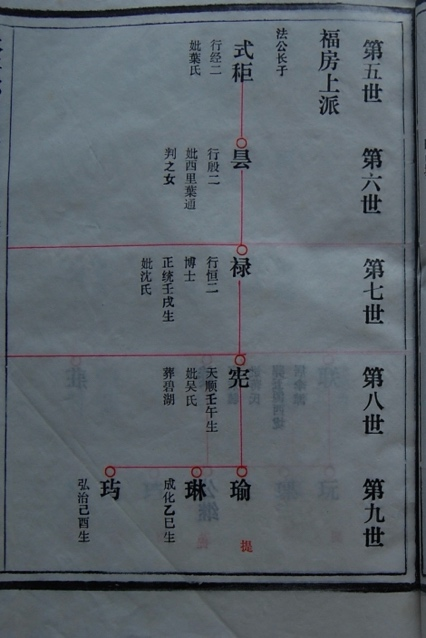 第五世
第六世
第七世
第八世
第九世
福房上派
法公长子
式秬
行经二
妣葉氏
昙
行殷二
妣西里葉通
判之女
禄
行恒二
博士
正统壬戌生
妣沈氏
宪
天顺壬午生
妣吴氏
葬碧湖
瑜
提
琳
成化乙巳生
弘治己酉生